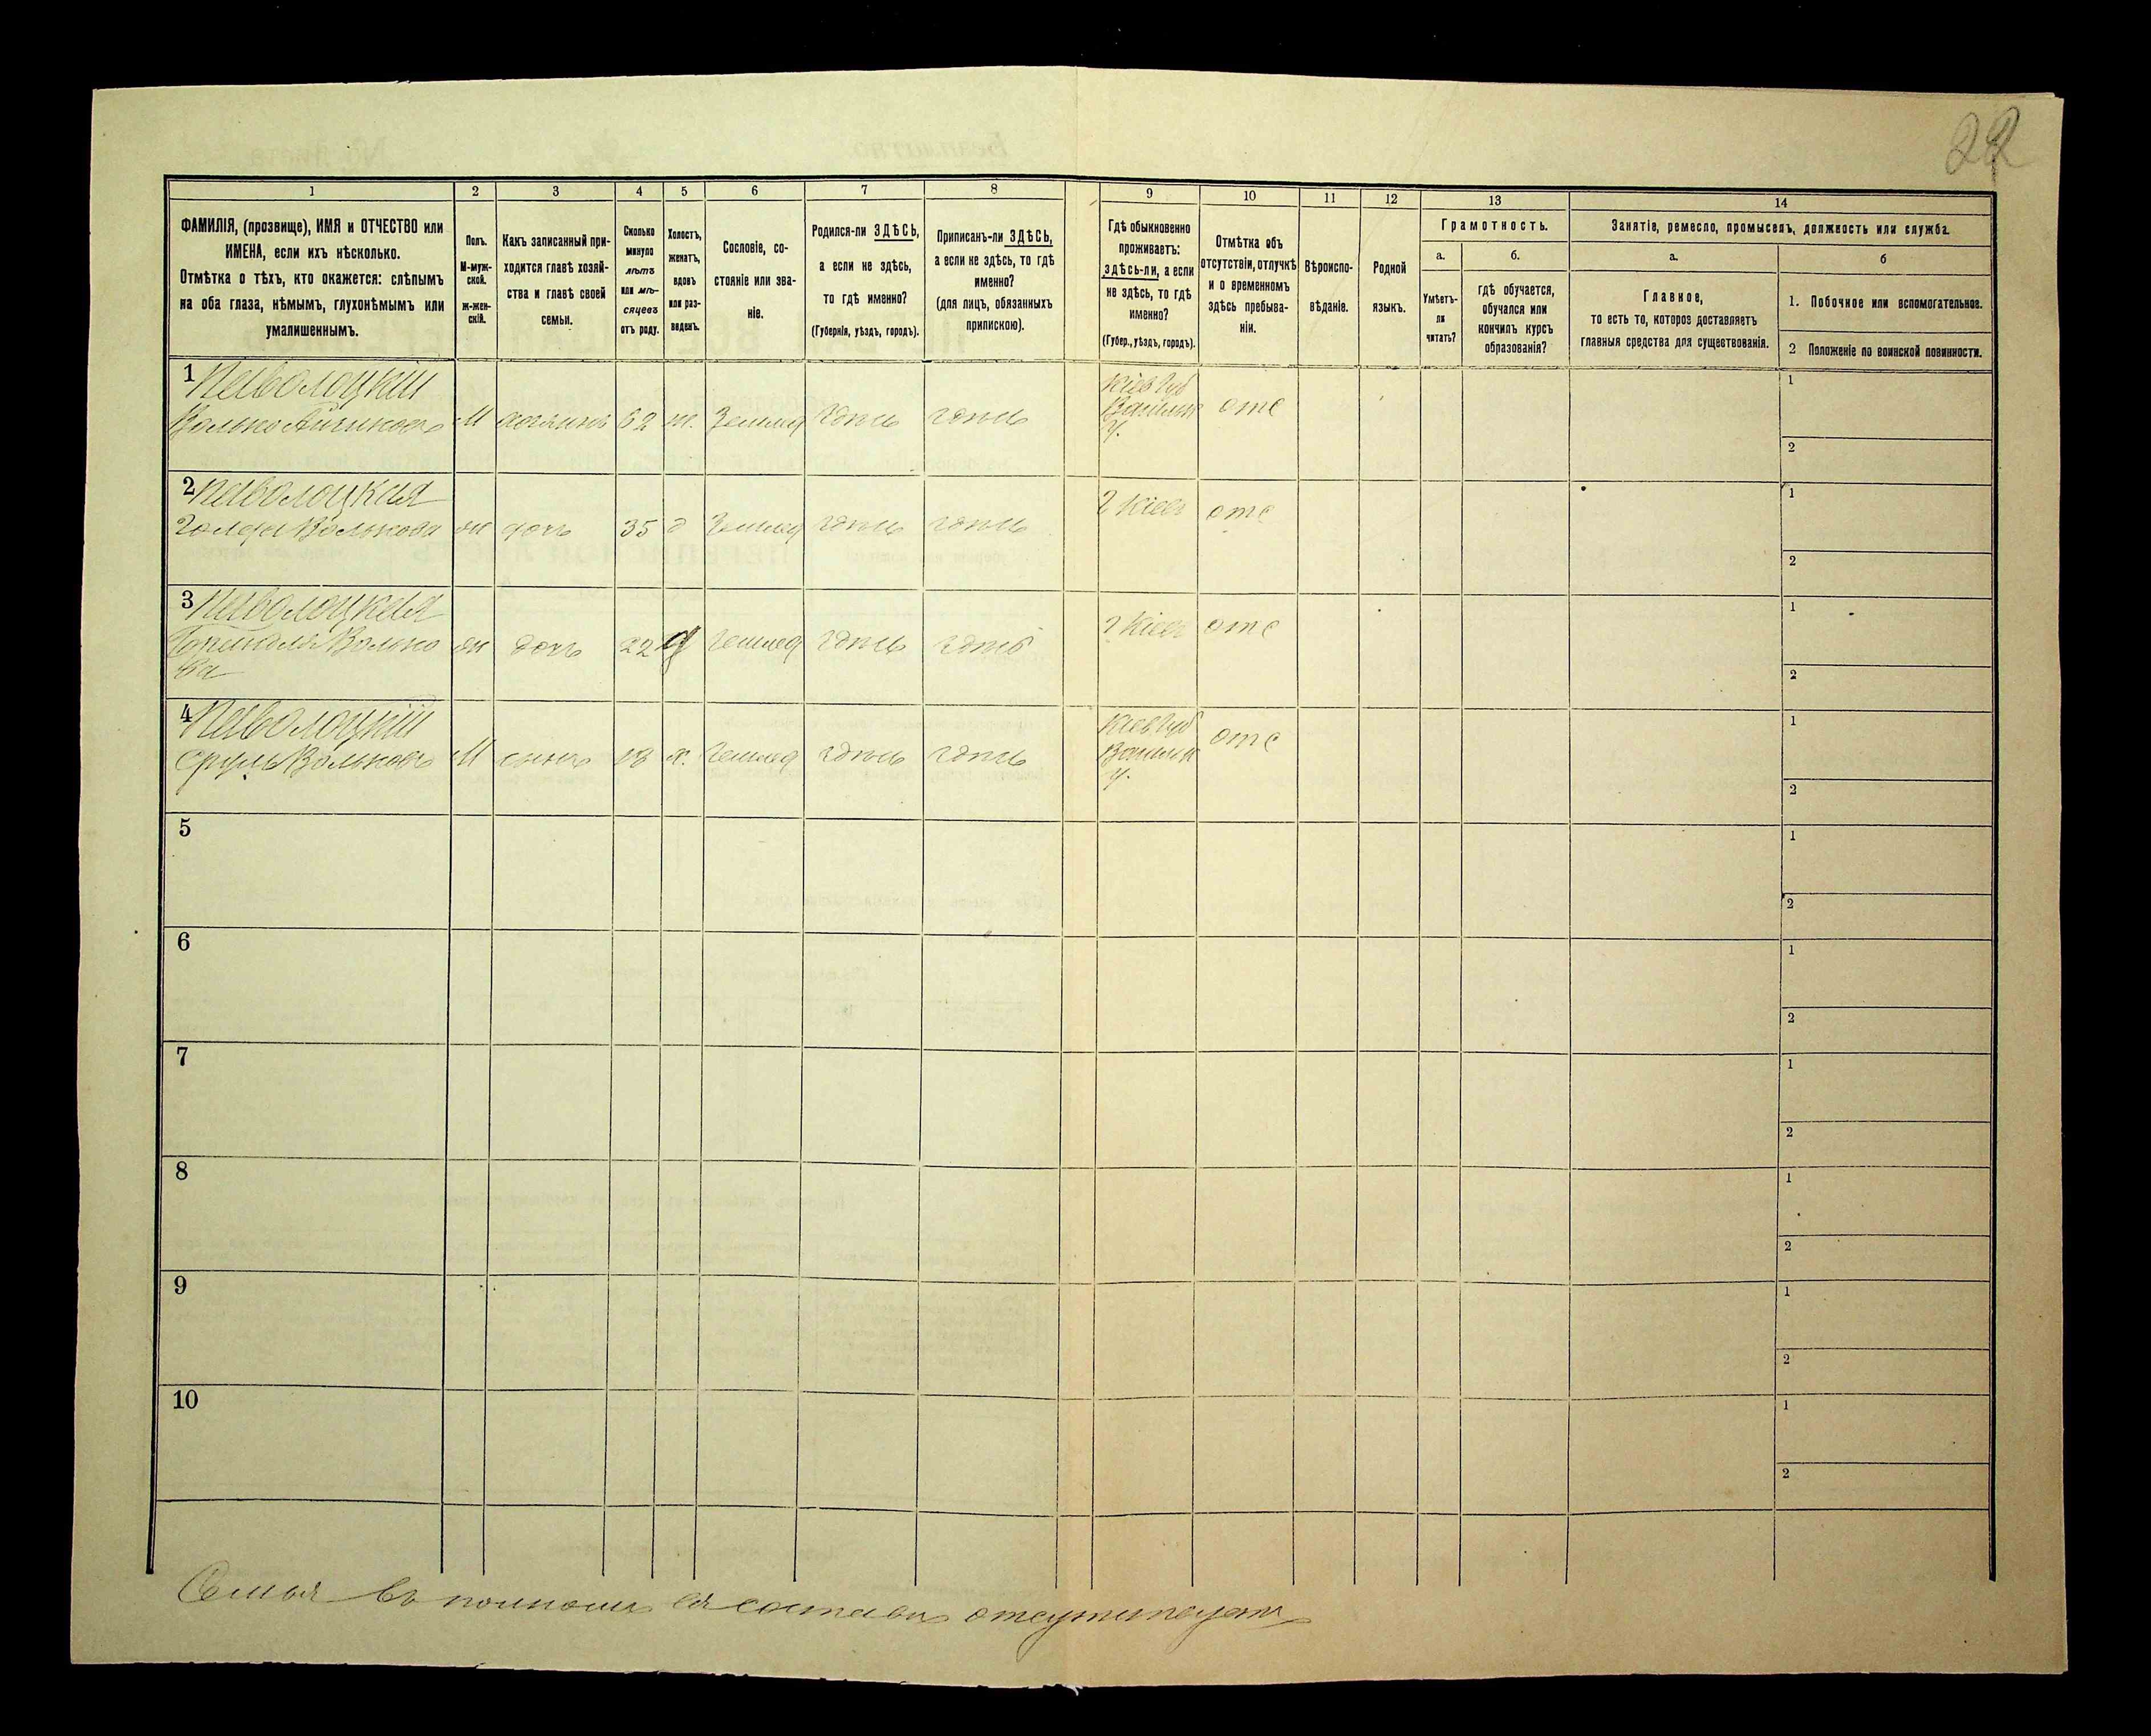 22
1
2
3
4
5
6
7
8
9
10
11
12
13
14
ФАМИЛІЯ, (прозвище), ИМЯ и ОТЧЕСТВО или
ИМЕНА, если ихъ нѣсколько.
Отмѣтка о тѣхъ, кто окажется: слѣпымъ
на оба глаза, нѣмымъ, глухонѣмымъ или
умалишеннымъ.
Полъ.
М-муж-
ской.
Ж-жен-
скій.
Какъ записанный при-
ходится главѣ хозяй-
ства и главѣ своей
семьи.
Сколько
минуло
лѣтъ
или мѣ-
сяцевъ
отъ роду.
Холостъ,
женатъ,
вдовъ
или раз-
веденъ.
Сословіе, со-
стояніе или зва-
ніе.
Родился-ли ЗДѢСЬ,
а если не здѣсь,
то гдѣ именно?
(Губернія, уѣздъ, городъ).
Приписанъ-ли ЗДѢСЬ,
а если не здѣсь, то гдѣ
именно?
(для лицъ, обязанныхъ
припискою).
Гдѣ обыкновенно
проживаетъ:
здѣсь-ли, а если
не здѣсь, то гдѣ
именно?
(Губер., уѣздъ, городъ).
Отмѣтка объ
отсутствіи, отлучкѣ
и о временномъ
здѣсь пребыва-
ніи.
Вѣроиспо-
вѣданіе.
Родной
языкъ.
Грамотность.
а.
Умѣетъ-
ли
читать?
б.
гдѣ обучается,
обучался или
кончилъ курсъ
образованія?
Занятіе, ремесло, промыселъ, должность или служба.
а.
Главное,
то есть то, которое доставляетъ
главныя средства для существованія.
б
1. Побочное или вспомогательное.
2 Положеніе по воинской повинности.
1 Паволоцкій
Волько М хозяинъ 62 ж. Землед здѣсь здѣсь
Кіев Губ
Васильк
У.
отс
1
2
2 Паволоцкая
Голда Волькова ж дочь 35 д Землед здѣсь здѣсь
г Кіевъ отс
1
2
3 Паволоцкая
Волько
ва
ж дочь 22 д Землед здѣсь здѣсь
г Кіевъ отс
1
2
4 Паволоцкій
Сруль Вольковъ М сынъ 18 х. Землед здѣсь здѣсь
Кіев Губ
Васильк
У.
отс
1
2
5
1
2
6
1
2
7
1
2
8
1
2
9
1
2
10
1
2
Семья въ полномъ ея составѣ отсутствуетъ